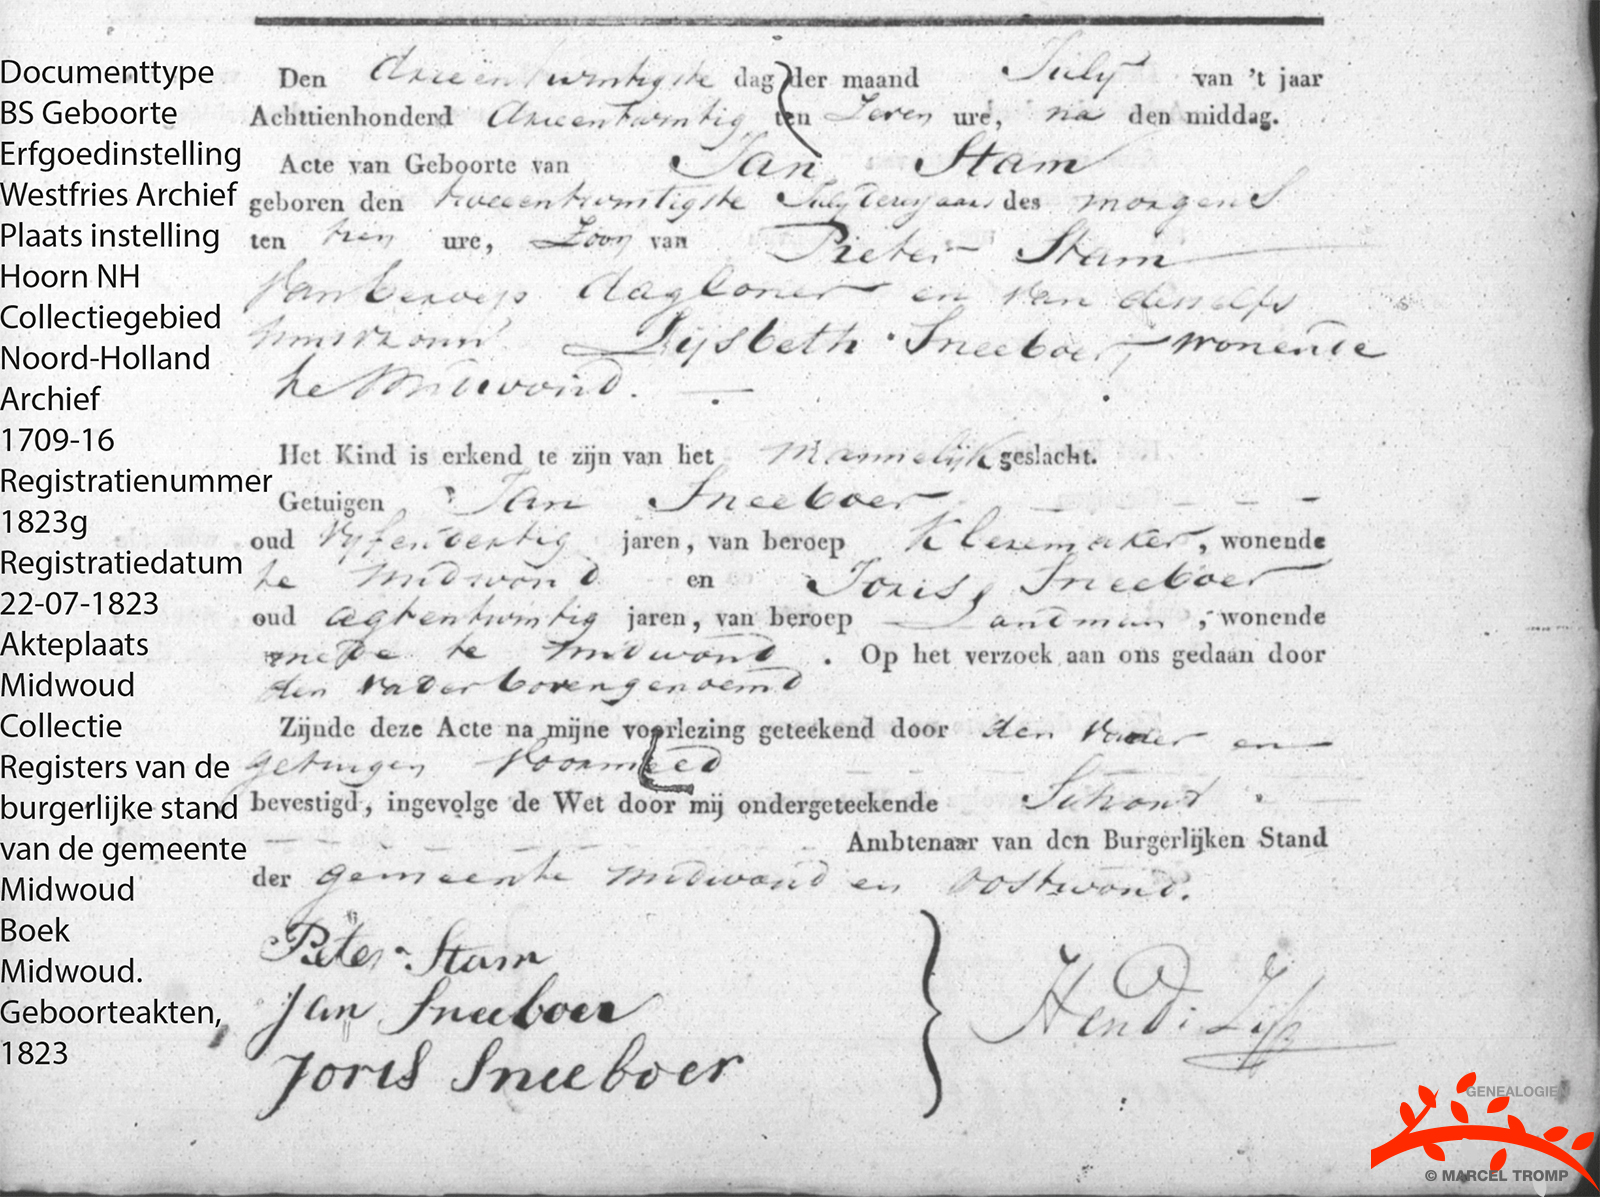 Documenttype
BS Geboorte
Erfgoedinstelling
Westfries Archief
Plaats instelling
Hoorn NH
Collectiegebied
Noord-Holland
Archief
1709-16
Registratienummer
1823g
Registratiedatum
22-07-1823
Akteplaats
Midwoud
Collectie
Registers van de
burgerlijke stand
van de gemeente
Midwoud
Boek
Midwoud.
Geboorteakten,
1823
Den drieentwintigste dag der maand July van 't jaar
Achttienhonderd drieentwintig ten Zeven ure, na den middag.
Acte van Geboorte van Jan Stam
geboren den tweeentwintigste July dezes jaars des morgens
ten tien ure, Zoon van Pieter Stam
van beroep dagloner en van deszelfs
huisvrouw Lijsbeth Sneeboer, wonende
te Midwoud.
Het Kind is erkend te zijn van het Mannelijk geslacht.
Getuigen Jan Sneeboer
oud vyfendertig jaren, van beroep Kleremaker, wonende
te Midwoud en Joris Sneeboer
oud agtentwintig jaren, van beroep Landman, wonende
mede te Midwoud. Op het verzoek aan ons gedaan door
den vader bovengenoemd
Zijnde deze Acte na mijne voorlezing geteekend door den vader en
getuigen voormeld
bevestigd, ingevolge de Wet door mij ondergeteekende Schout
Ambtenaar van den Burgerlijken Stand
der gemeente Midwoud en Oostwoud.
Pieter Stam
Jan Sneeboer
Joris Sneeboer
GENEALOGIE
© MARCEL TROMP